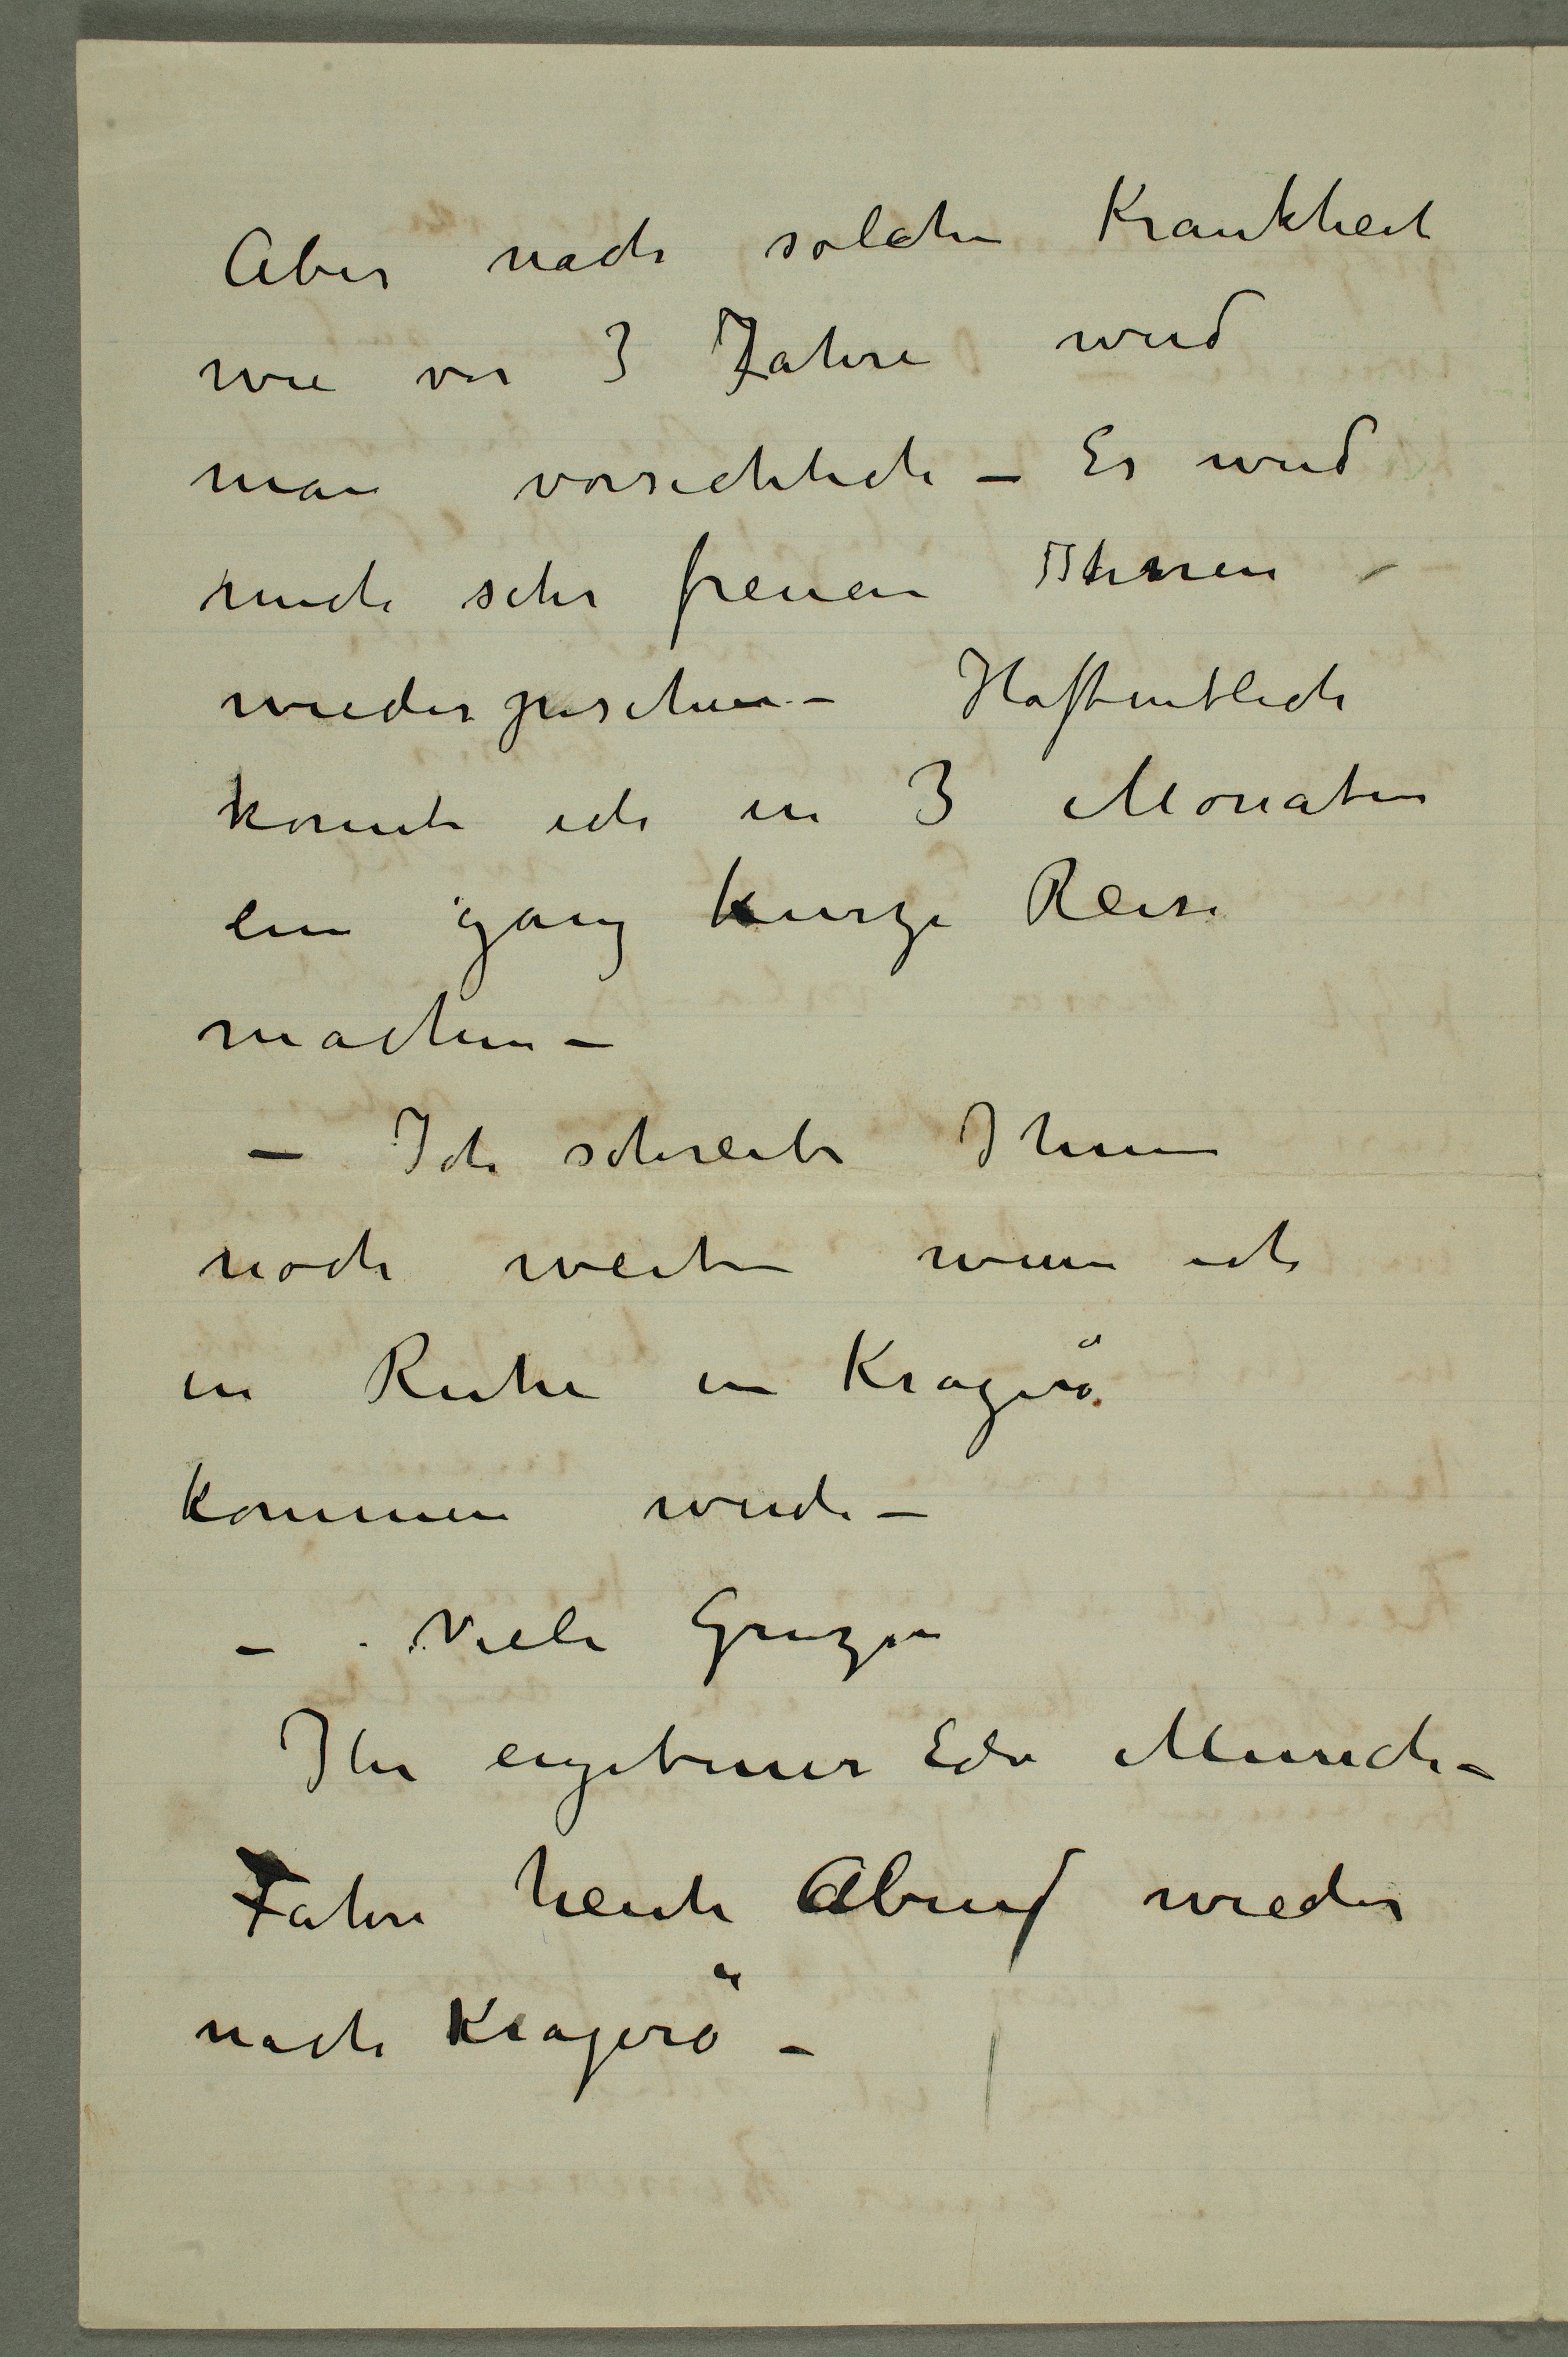 Aber nach solcher Krankheit
wie vor 3 Jahre wird
man vorsichtlich – Es wird
mich sehr freuen Ihnen
wiederzusehen – Hoffentlich
konnte ich in 3 Monaten
ein ganz kurze Reise
machen –
– Ich schreibe Ihnen
noch weiter wenn ich
in Ruhe in Kragerö
kommen werde –
– Viele Gruze
Ihr ergebener Edv Munch –
Fahre heute Abend wieder
nach Kragerö –